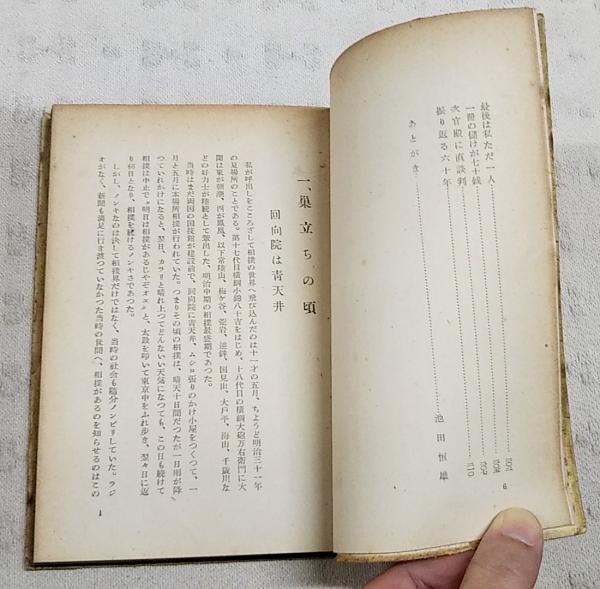 最後は私ただ一人
一冊の儲けが七十銭
次官殿に直談判
振り返る六十年
あとがき……池田恒雄
6
一、巣立ちの頃
回向院は青天井
私が呼出しをこころざして相撲の世界へ飛び込んだのは十一才の五月、ちようど明治三十一年
の夏場所のことである。第十七代目横綱小錦八十吉をはじめ、十八代目の横綱大砲万右衛門に大
関は東が朝潮、西が鳳凰、以下常陸山、梅ケ谷、荒岩、逆鉾、国見山、大戸平、海山、千歳川な
どの好力士が陸続として輩出した、明治中期の相撲最盛期であつた。
当時はまだ両国の国技館が建設前で、回向院に青天井、ムシロ張りのかけ小屋をつくつて、一
月と五月に本場所相撲が行われていた。つまりその頃の相撲は、晴天十日間だつたが一日雨が降
つていれかけになると、翌日、カラリと晴れ上つてどんないい天気になつても、この日も続けて
相撲は中止で〝明日は相撲があるじやぞオエ〟と、太鼓を叩いて東京中をふれ歩き、翌々日に返
り初日となり、相撲を続けるノンキさであつた。
しかし、ノンキなのは決して相撲界だけではなく、当時の社会も随分ノンビリしていた。ラジ
オがなく、新聞も満足に行き渡つていなかつた当時の世間へ、相撲があるのを知らせるのはこの
1